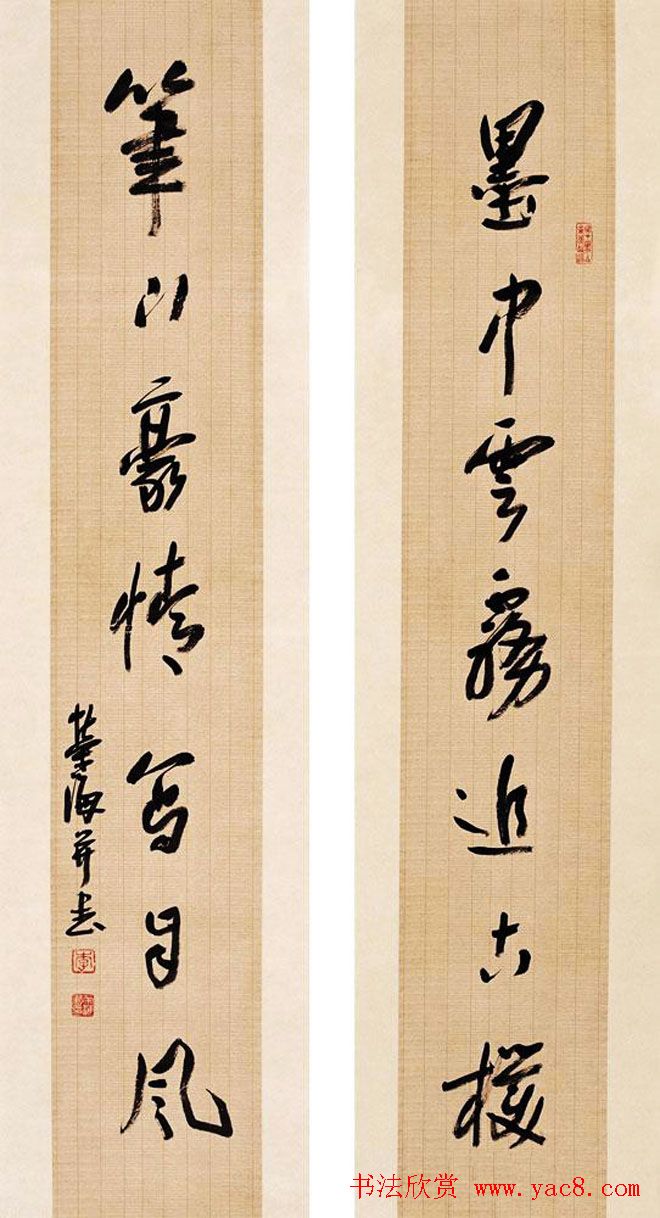 墨中雲霧追古樸
筆下豪情寫自風
榮海并書
书法欣赏 www.yac8.com